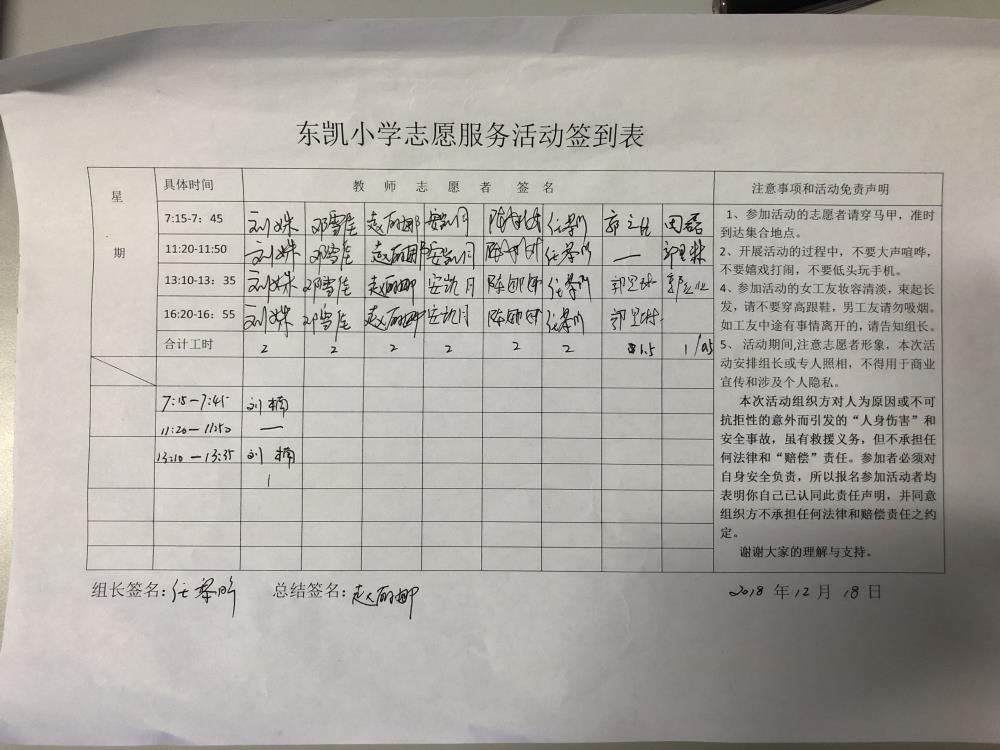 东凯小学志愿服务活动签到表
星期 具体时间 教师志愿者 签名 注意事项和活动免责声明
7:15-7：45 刘姝 邓雪佳 赵丽娜 安凯月 任黎昕 田磊
11:20-11:50 刘姝 邓雪佳 赵丽娜 安凯月 任黎昕 —
13:10-13：35 刘姝 邓雪佳 赵丽娜 安凯月 任黎昕
16:20-16：55 刘姝 邓雪佳 赵丽娜 安凯月 任黎昕
合计工时 2 2 2 2 2 2 1.5 1/0.5
7:15—7:45 刘楠
11:20—11:50 —
13:10—13:35 刘楠
1
1、参加活动的志愿者请穿马甲，准时
到达集合地点。
2、开展活动的过程中，不要大声喧哗，
不要嬉戏打闹，不要低头玩手机。
4、参加活动的女工友妆容清淡，束起长
发，请不要穿高跟鞋，男工友请勿吸烟。
如工友中途有事情离开的，请告知组长。
5、 活动期间,注意志愿者形象，本次活
动安排组长或专人照相，不得用于商业
宣传和涉及个人隐私。
本次活动组织方对人为原因或不可
抗拒性的意外而引发的“人身伤害”和
安全事故，虽有救援义务，但不承担任
何法律和“赔偿”责任。参加者必须对
自身安全负责，所以报名参加活动者均
表明你自己已认同此责任声明，并同意
组织方不承担任何法律和赔偿责任之约
定。
谢谢大家的理解与支持。
组长签名：任黎昕 总结签名：赵丽娜 2018 年 12 月 18 日